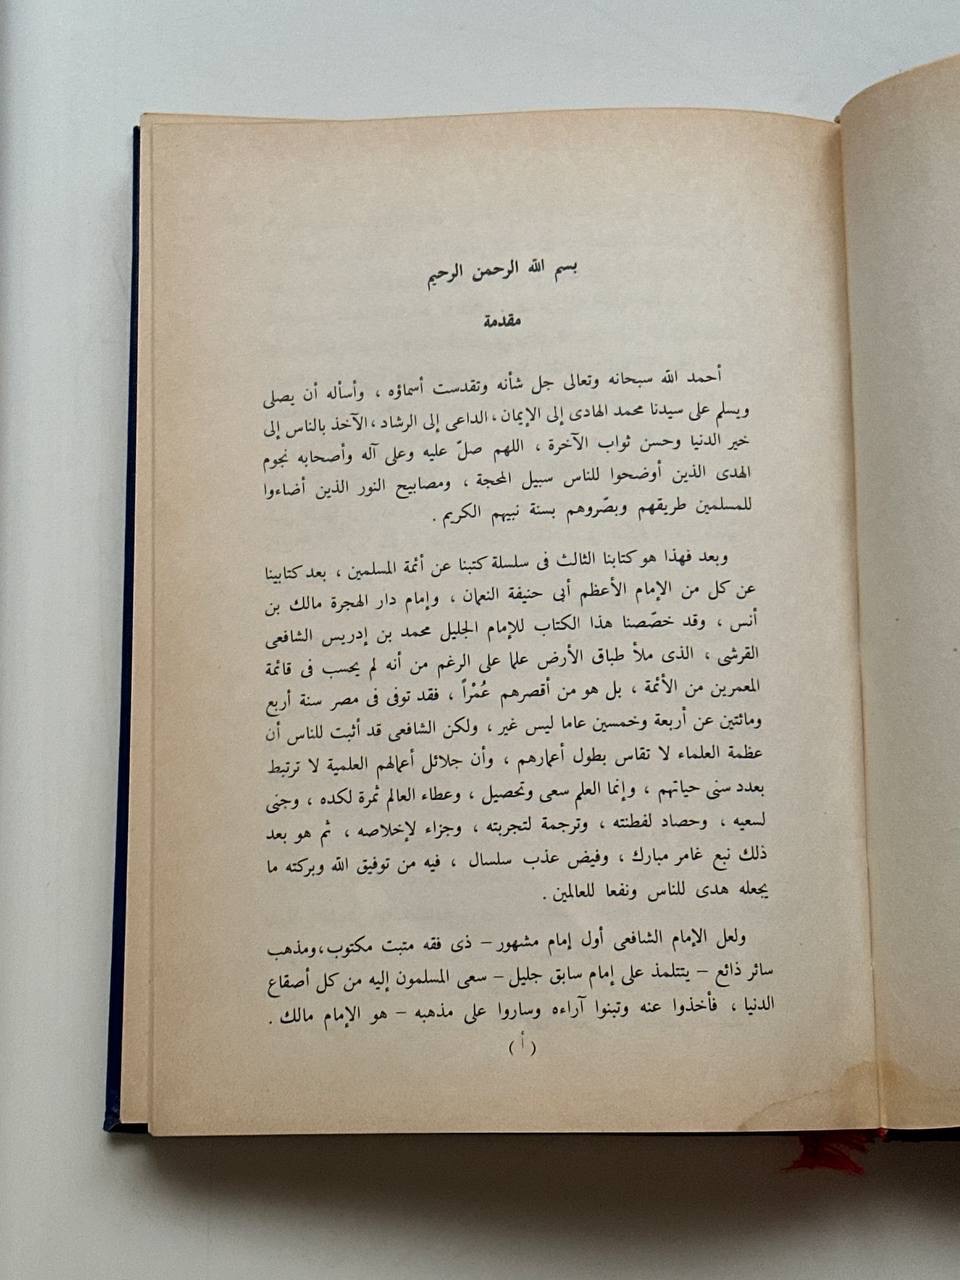 بسم الله الرحمن الرحيم
مقدمة
أحمد الله سبحانه وتعالى جل شأنه وتقدست أسماؤه ، وأسأله أن يصلى
ويسلم على سيدنا محمد الهادى إلى الإيمان ، الداعى إلى الرشاد ، الآخذ بالناس إلى
خير الدنيا وحسن ثواب الآخرة ، اللهم صلّ عليه وعلى آله وأصحابه نجوم
الهدى الذين أوضحوا للناس سبيل المحجة ، ومصابيح النور الذين أضاءوا
للمسلمين طريقهم وبصّروهم بسنة نبيهم الكريم .
وبعد فهذا هو كتابنا الثالث فى سلسلة كتبنا عن أئمة المسلمين ، بعد كتابينا
عن كل من الإمام الأعظم أبى حنيفة النعمان ، وإمام دار الهجرة مالك بن
أنس ، وقد خصّصنا هذا الكتاب للإمام الجليل محمد بن إدريس الشافعى
القرشى ، الذى ملأ طباق الأرض علما على الرغم من أنه لم يحسب فى قائمة
المعمرين من الأئمة ، بل هو من أقصرهم عُمْراً ، فقد توفى فى مصر سنة أربع
ومائتين عن أربعة وخمسين عاما ليس غير ، ولكن الشافعى قد أثبت للناس أن
عظمة العلماء لا تقاس بطول أعمارهم ، وأن جلائل أعمالهم العلمية لا ترتبط
بعدد سنى حياتهم ، وإنما العلم سعى وتحصيل ، وعطاء العالم ثمرة لكده ، وجنى
لسعيه ، وحصاد لفطنته ، وترجمة لتجربته ، وجزاء لإخلاصه ، ثم هو بعد
ذلك نبع غامر مبارك ، وفيض عذب سلسال ، فيه من توفيق الله وبركته ما
يجعله هدى للناس ونفعا للعالمين .
ولعل الإمام الشافعى أول إمام مشهور – ذى فقه مثبت مكتوب ، ومذهب
سائر ذائع – يتتلمذ على إمام سابق جليل – سعى المسلمون إليه من كل أصقاع
الدنيا ، فأخذوا عنه وتبنوا آراءه وساروا على مذهبه – هو الإمام مالك .
( أ )